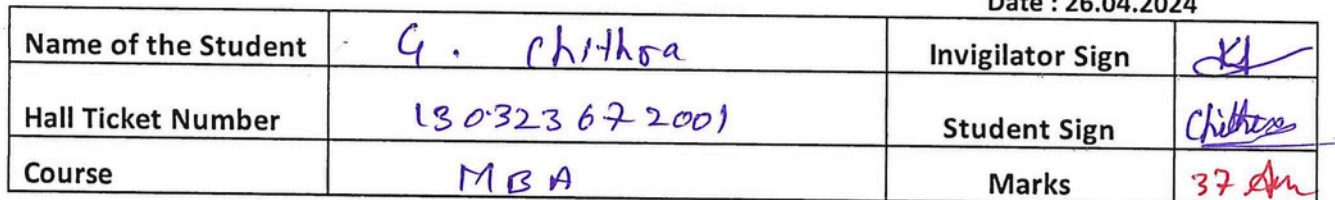 Date : 26.04.2024
Name of the Student G. Chithra Invigilator Sign
Hall Ticket Number 130323672001 Student Sign Chithra
Course MBA Marks 37